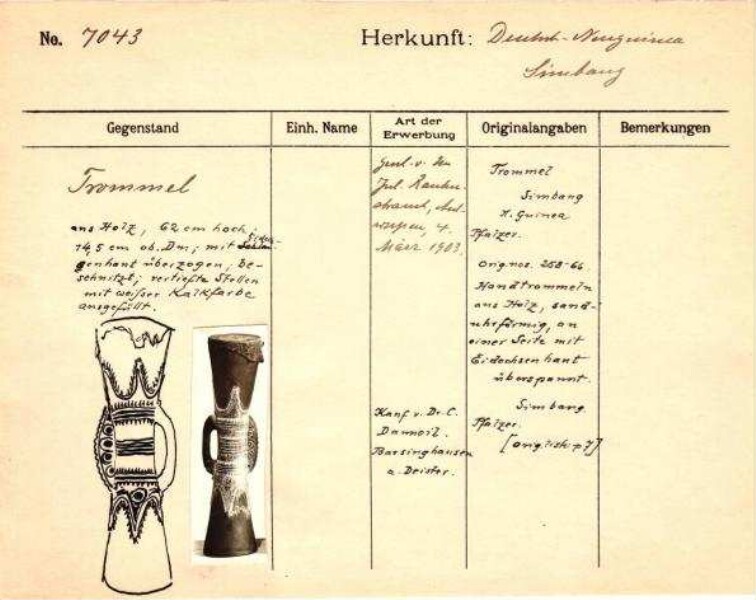 No. 7043
Herkunft: Deutsch-Neuguinea
Simbang
Gegenstand
Einh. Name
Art der
Erwerbung
Originalangaben
Bemerkungen
Trommel
aus Holz, 62 cm hoch;
14,5 cm ob. Dm; mit Eidech-
genhaut überzogen; be-
schnitzt; vertiefte Stellen
mit weißer Kalkfarbe
ausgefüllt.
März 1903.
Kauf v. Dr. C.
Barsinghausen
a. Deister.
Trommel
Simbang
N. Guinea
Pfalzer.
Orig. nos. 258-66
Handtrommeln
aus Holz, sand-
uhrförmig, an
einer Seite mit
Eidechsenhaut
überspannt.
Simbang.
Pfalzer.
[orig. liste p 7]